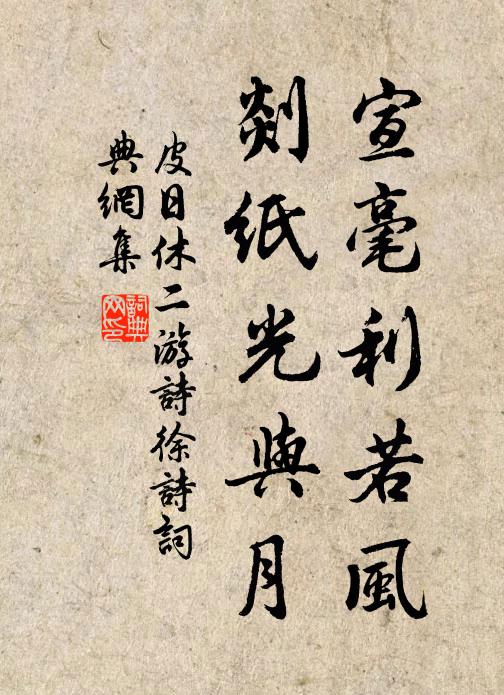 宣毫利若風
剡紙光與月
皮日休二游詩徐詩詞
典網集
詞典网印